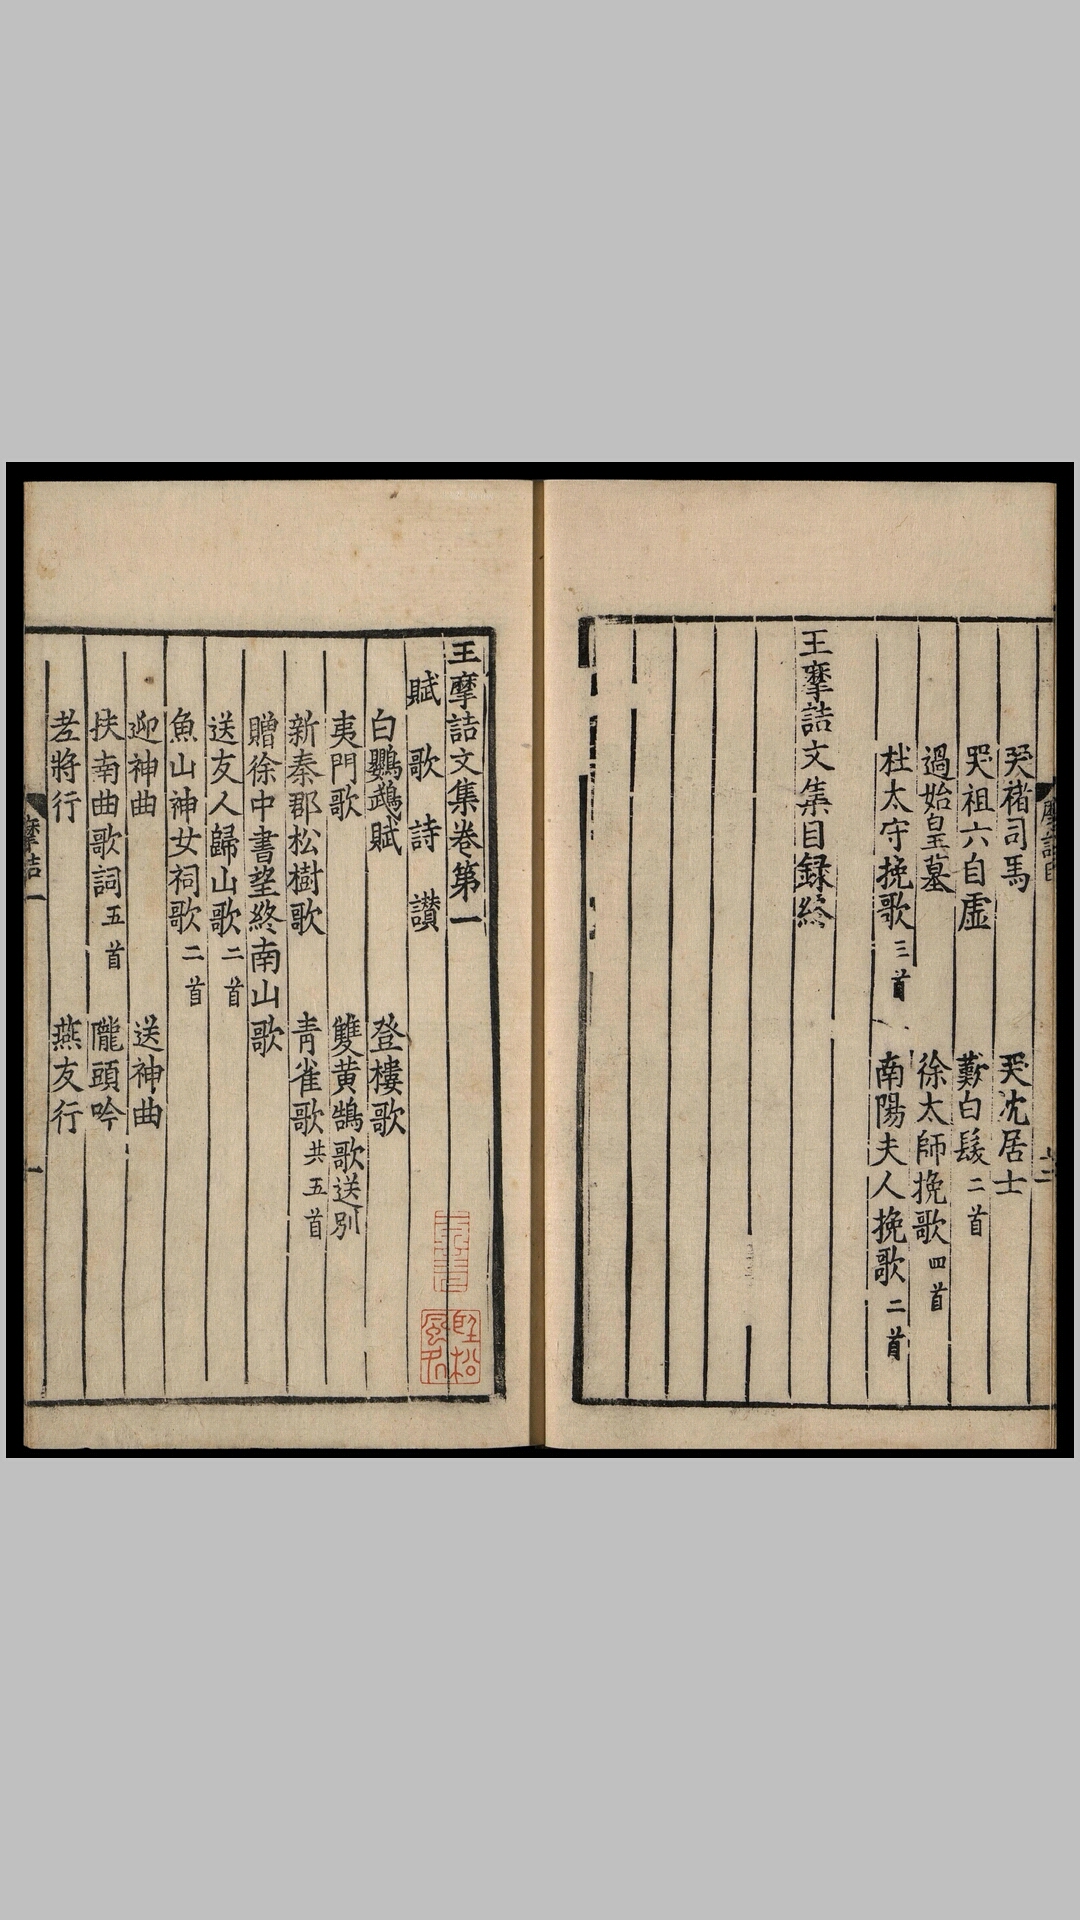 哭褚司馬 哭沈居士
哭祖六自虛 歎白髮二首
過始皇墓 徐太師挽歌四首
杜太守挽歌三首 南陽夫人挽歌二首
王摩詰文集目録終
王摩詰文集卷第一
賦 歌 詩 讃
白鸚鵡賦 登樓歌
夷門歌 雙黄鵠歌送別
新秦郡松樹歌 青雀歌共五首
贈徐中書望終南山歌
送友人歸山歌二首
魚山神女祠歌二首
迎神曲 送神曲
扶南曲歌詞五首 隴頭吟
老將行 燕友行
摩詰一
一